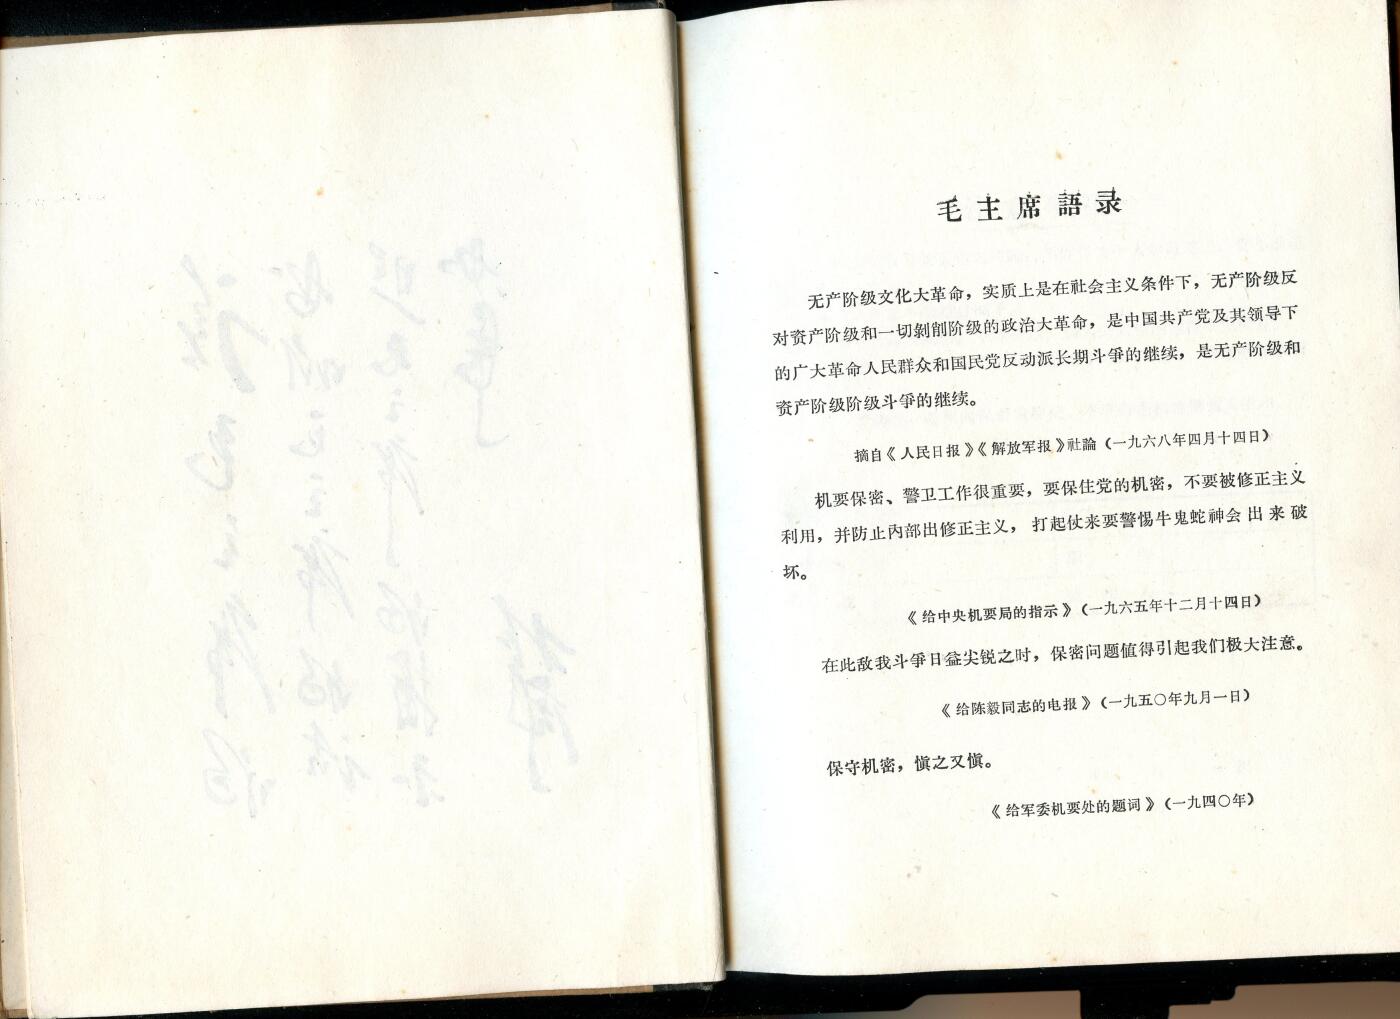 毛主席語录
无产阶级文化大革命，实质上是在社会主义条件下，无产阶级反
对资产阶级和一切剝削阶级的政治大革命，是中国共产党及其领导下
的广大革命人民群众和国民党反动派长期斗爭的继续，是无产阶级和
资产阶级阶级斗爭的继续。
摘自《人民日报》《解放军报》社論（一九六八年四月十四日）
机要保密、警卫工作很重要，要保住党的机密，不要被修正主义
利用，并防止內部出修正主义，打起仗来要警惕牛鬼蛇神会出来破
坏。
《给中央机要局的指示》（一九六五年十二月十四日）
在此敌我斗爭日益尖锐之时，保密问题值得引起我们极大注意。
《给陈毅同志的电报》（一九五〇年九月一日）
保守机密，愼之又愼。
《给军委机要处的题词》（一九四〇年）